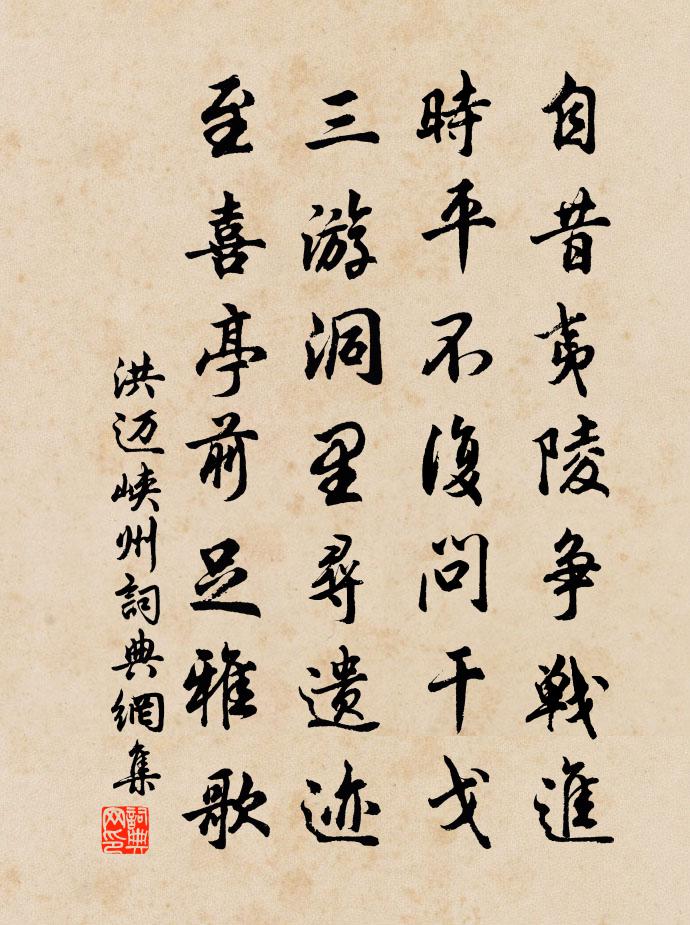 自昔夷陵争戰進
時平不復問干戈
三游洞里尋遗迹
至喜亭前足雅歌
洪迈峡州詞典網集
詞典网印